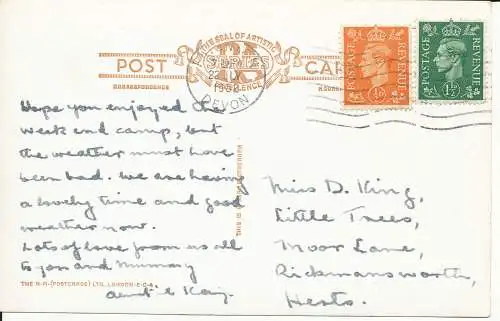 THE SEAL OF ARTISTIC
EXCELLENCE
POST CARD
CORRESPONDENCE
1952
DEVON
POSTAGE REVENUE
½D
POSTAGE REVENUE
1½D
Hope you enjoyed the
week end camp, but
the weather must have
been bad. We are having
a lovely time and good
weather now.
Lots of love from us all
to you and Mummy
Miss D. King,
Little Trees,
Moor Lane,
Rickmansworth,
Herts.
THIS IS A
THE R.A. (POSTCARDS) LTD., LONDON. E.C.4.